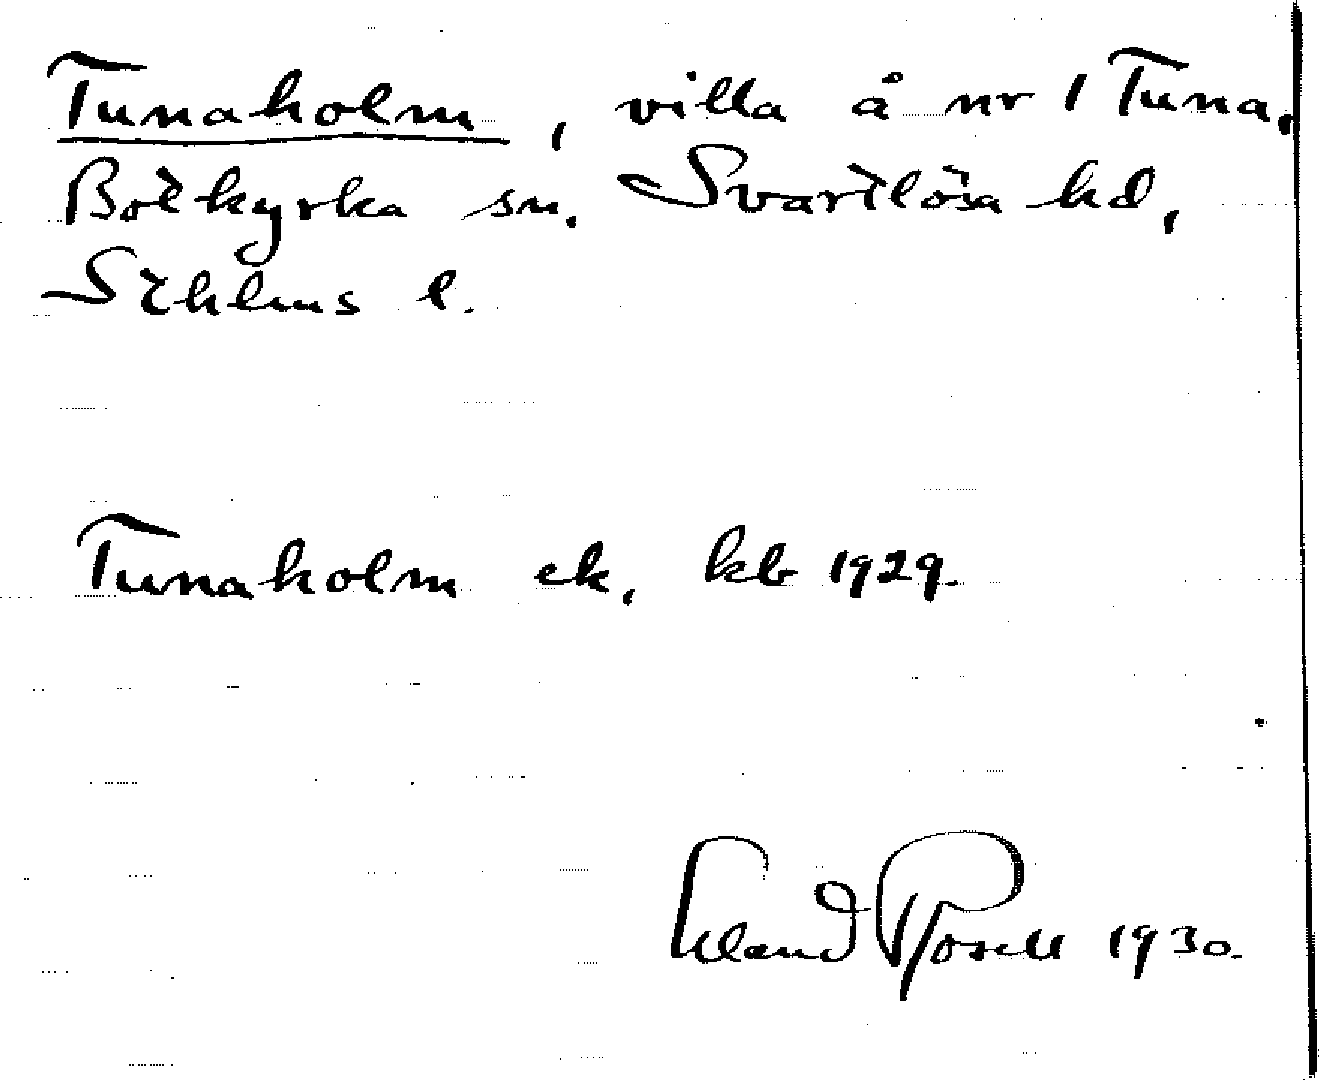 Tunaholm, villa å nr 1 Tuna,
Botkyrka sn. Svartlösa hd,
Sthlms l.
Tunaholm ek, kb 1929.
Erland Rosell 1930.